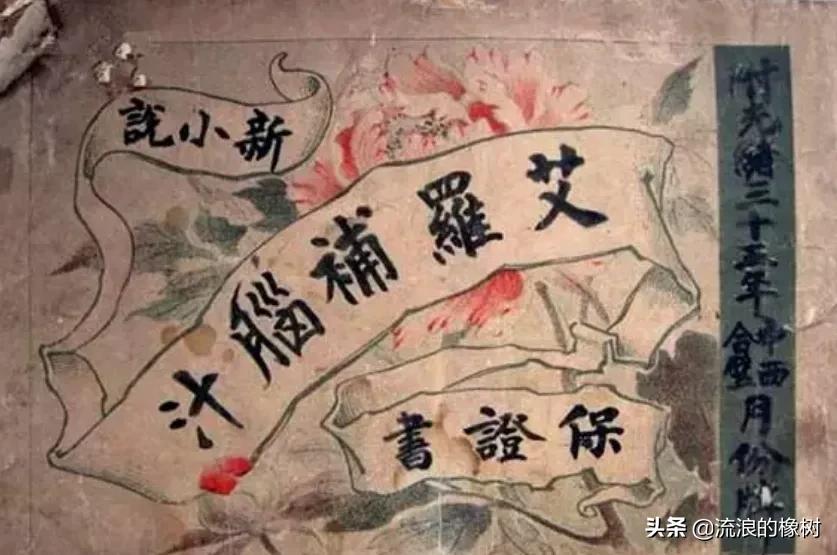 新小說
艾羅補腦汁
保證書
附光緒三十五年中西合璧月份牌
头条 @流浪的橡树